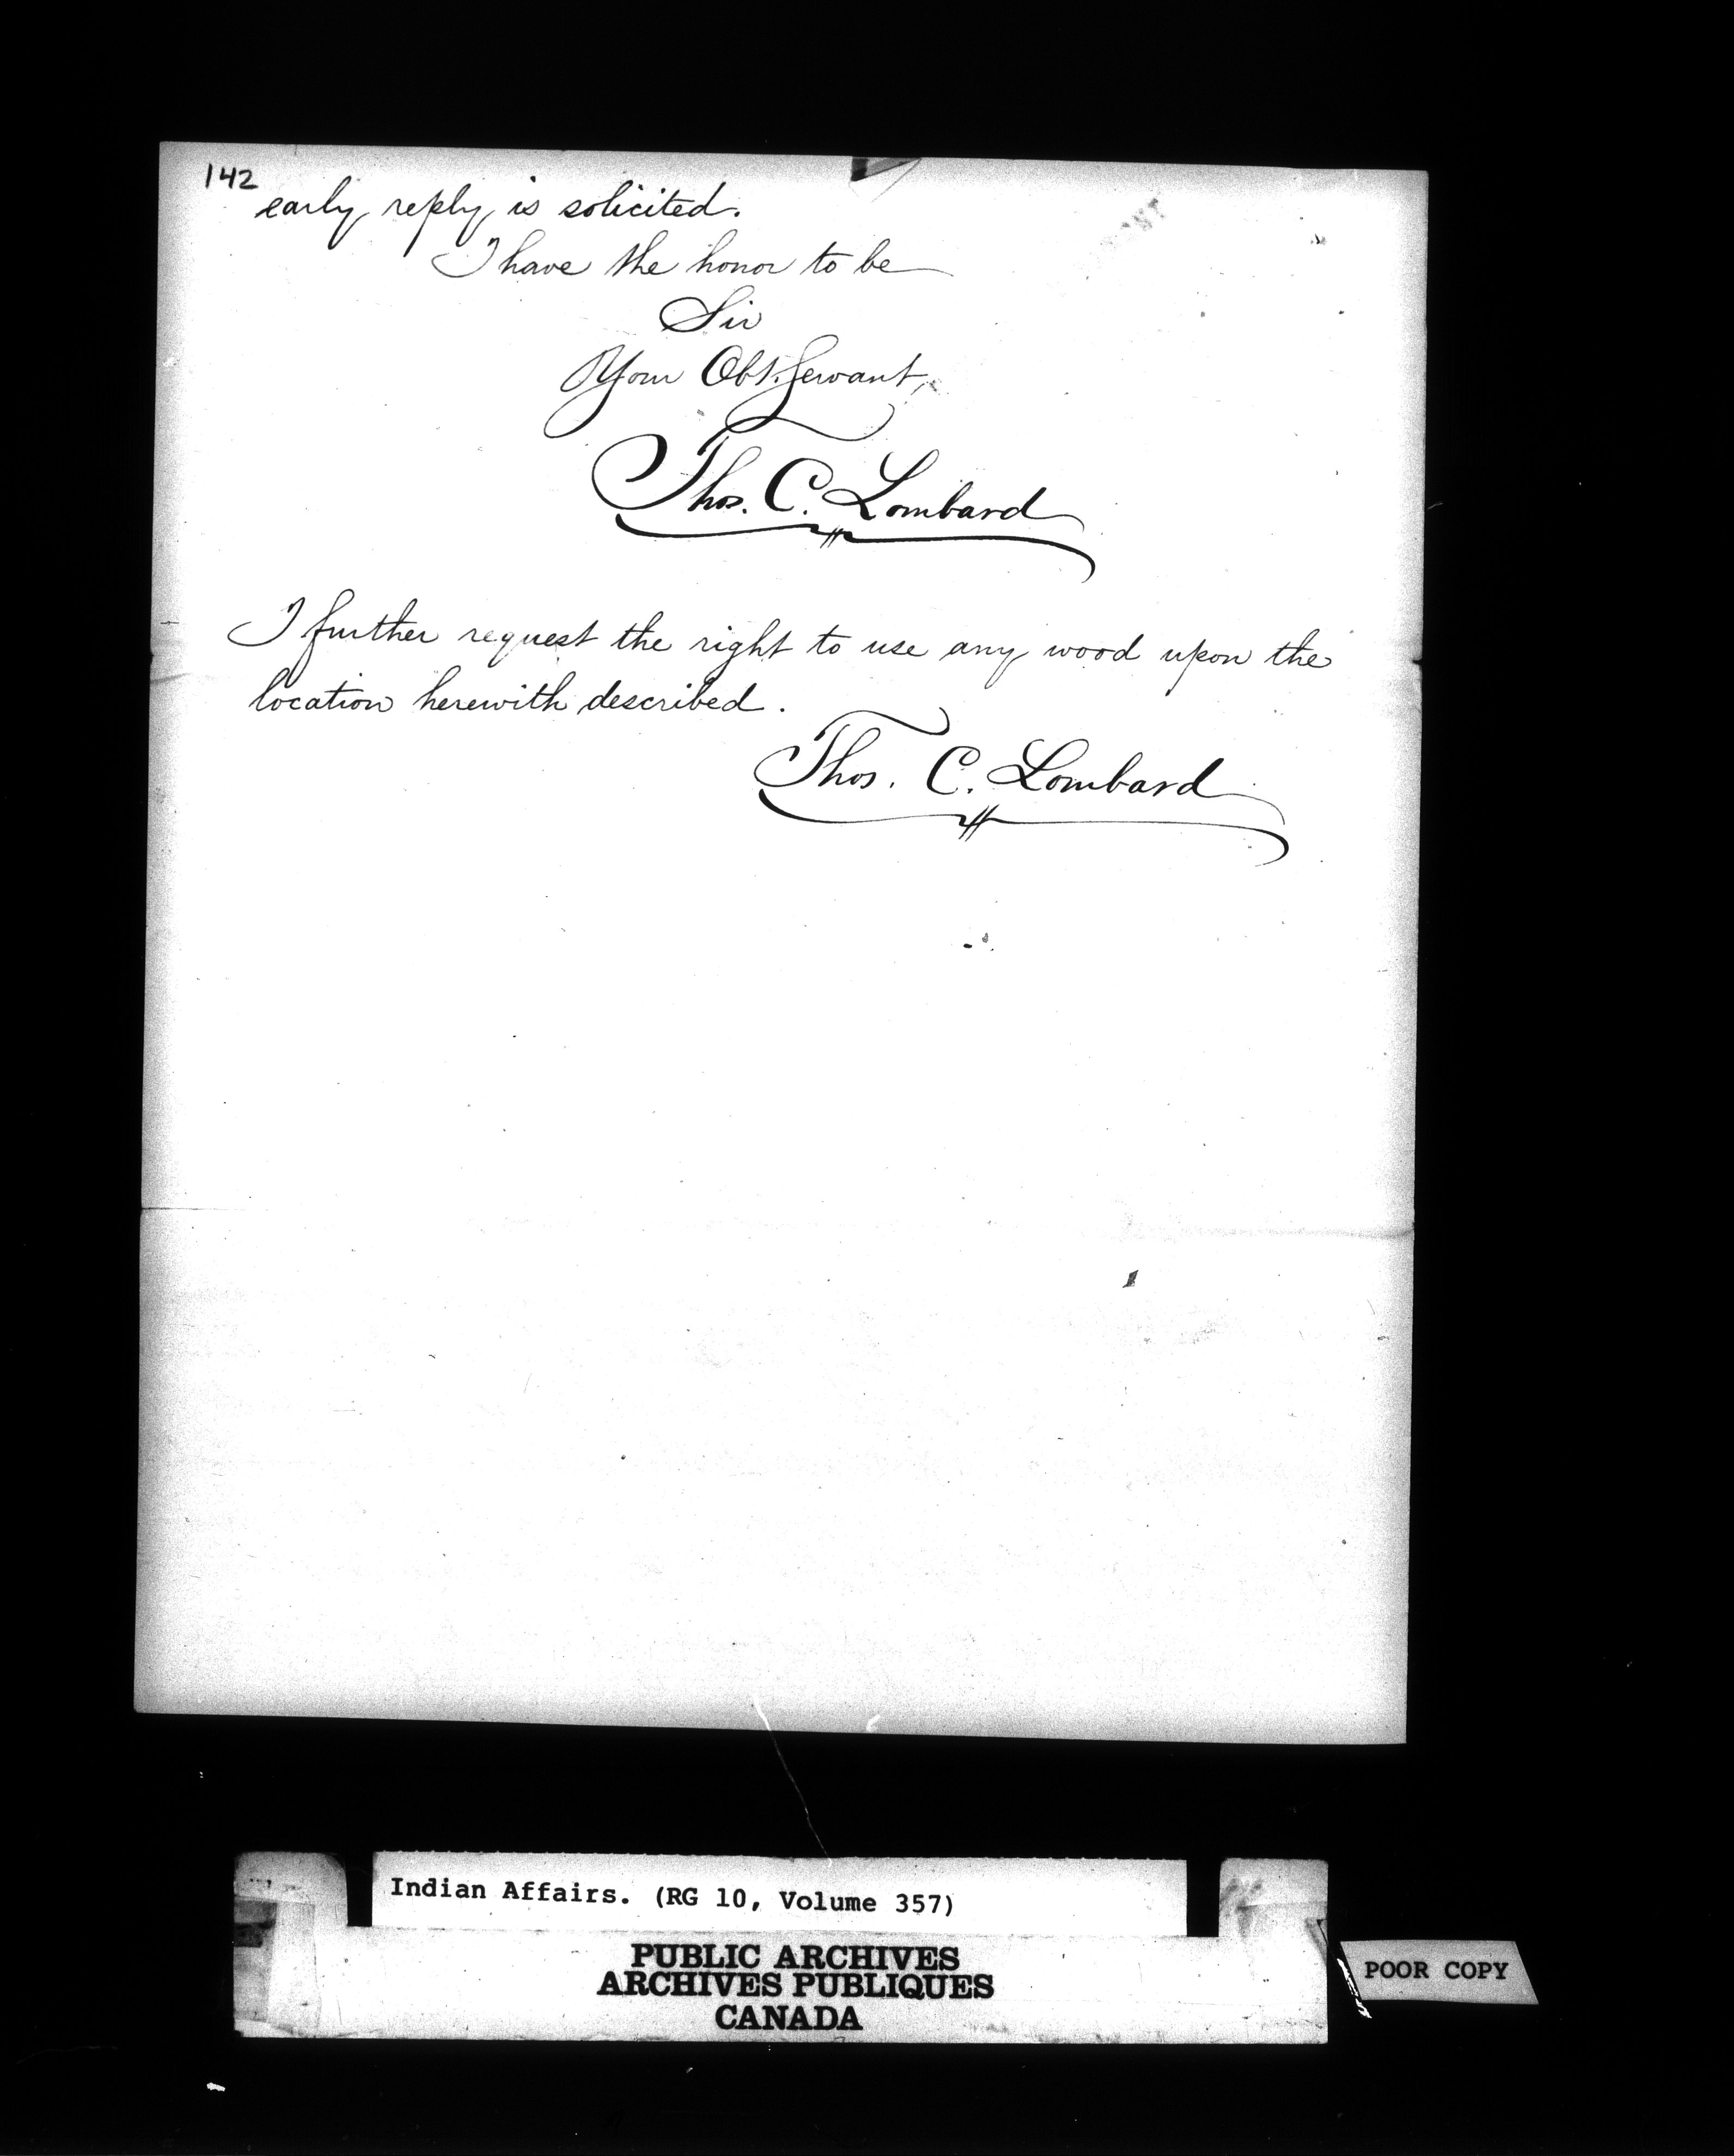 142
early reply is solicited.
I have the honor to be
Sir
Your Obt. Servant,
Thos. C. Lombard
I further request the right to use any wood upon the
location herewith described.
Thos. C. Lombard
Indian Affairs. (RG 10, Volume 357)
PUBLIC ARCHIVES
ARCHIVES PUBLIQUES
CANADA
POOR COPY